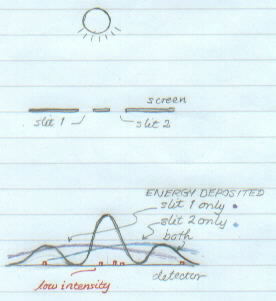 screen
slit 1
slit 2
ENERGY DEPOSITED
slit 1 only
slit 2 only
both
low intensity
detector